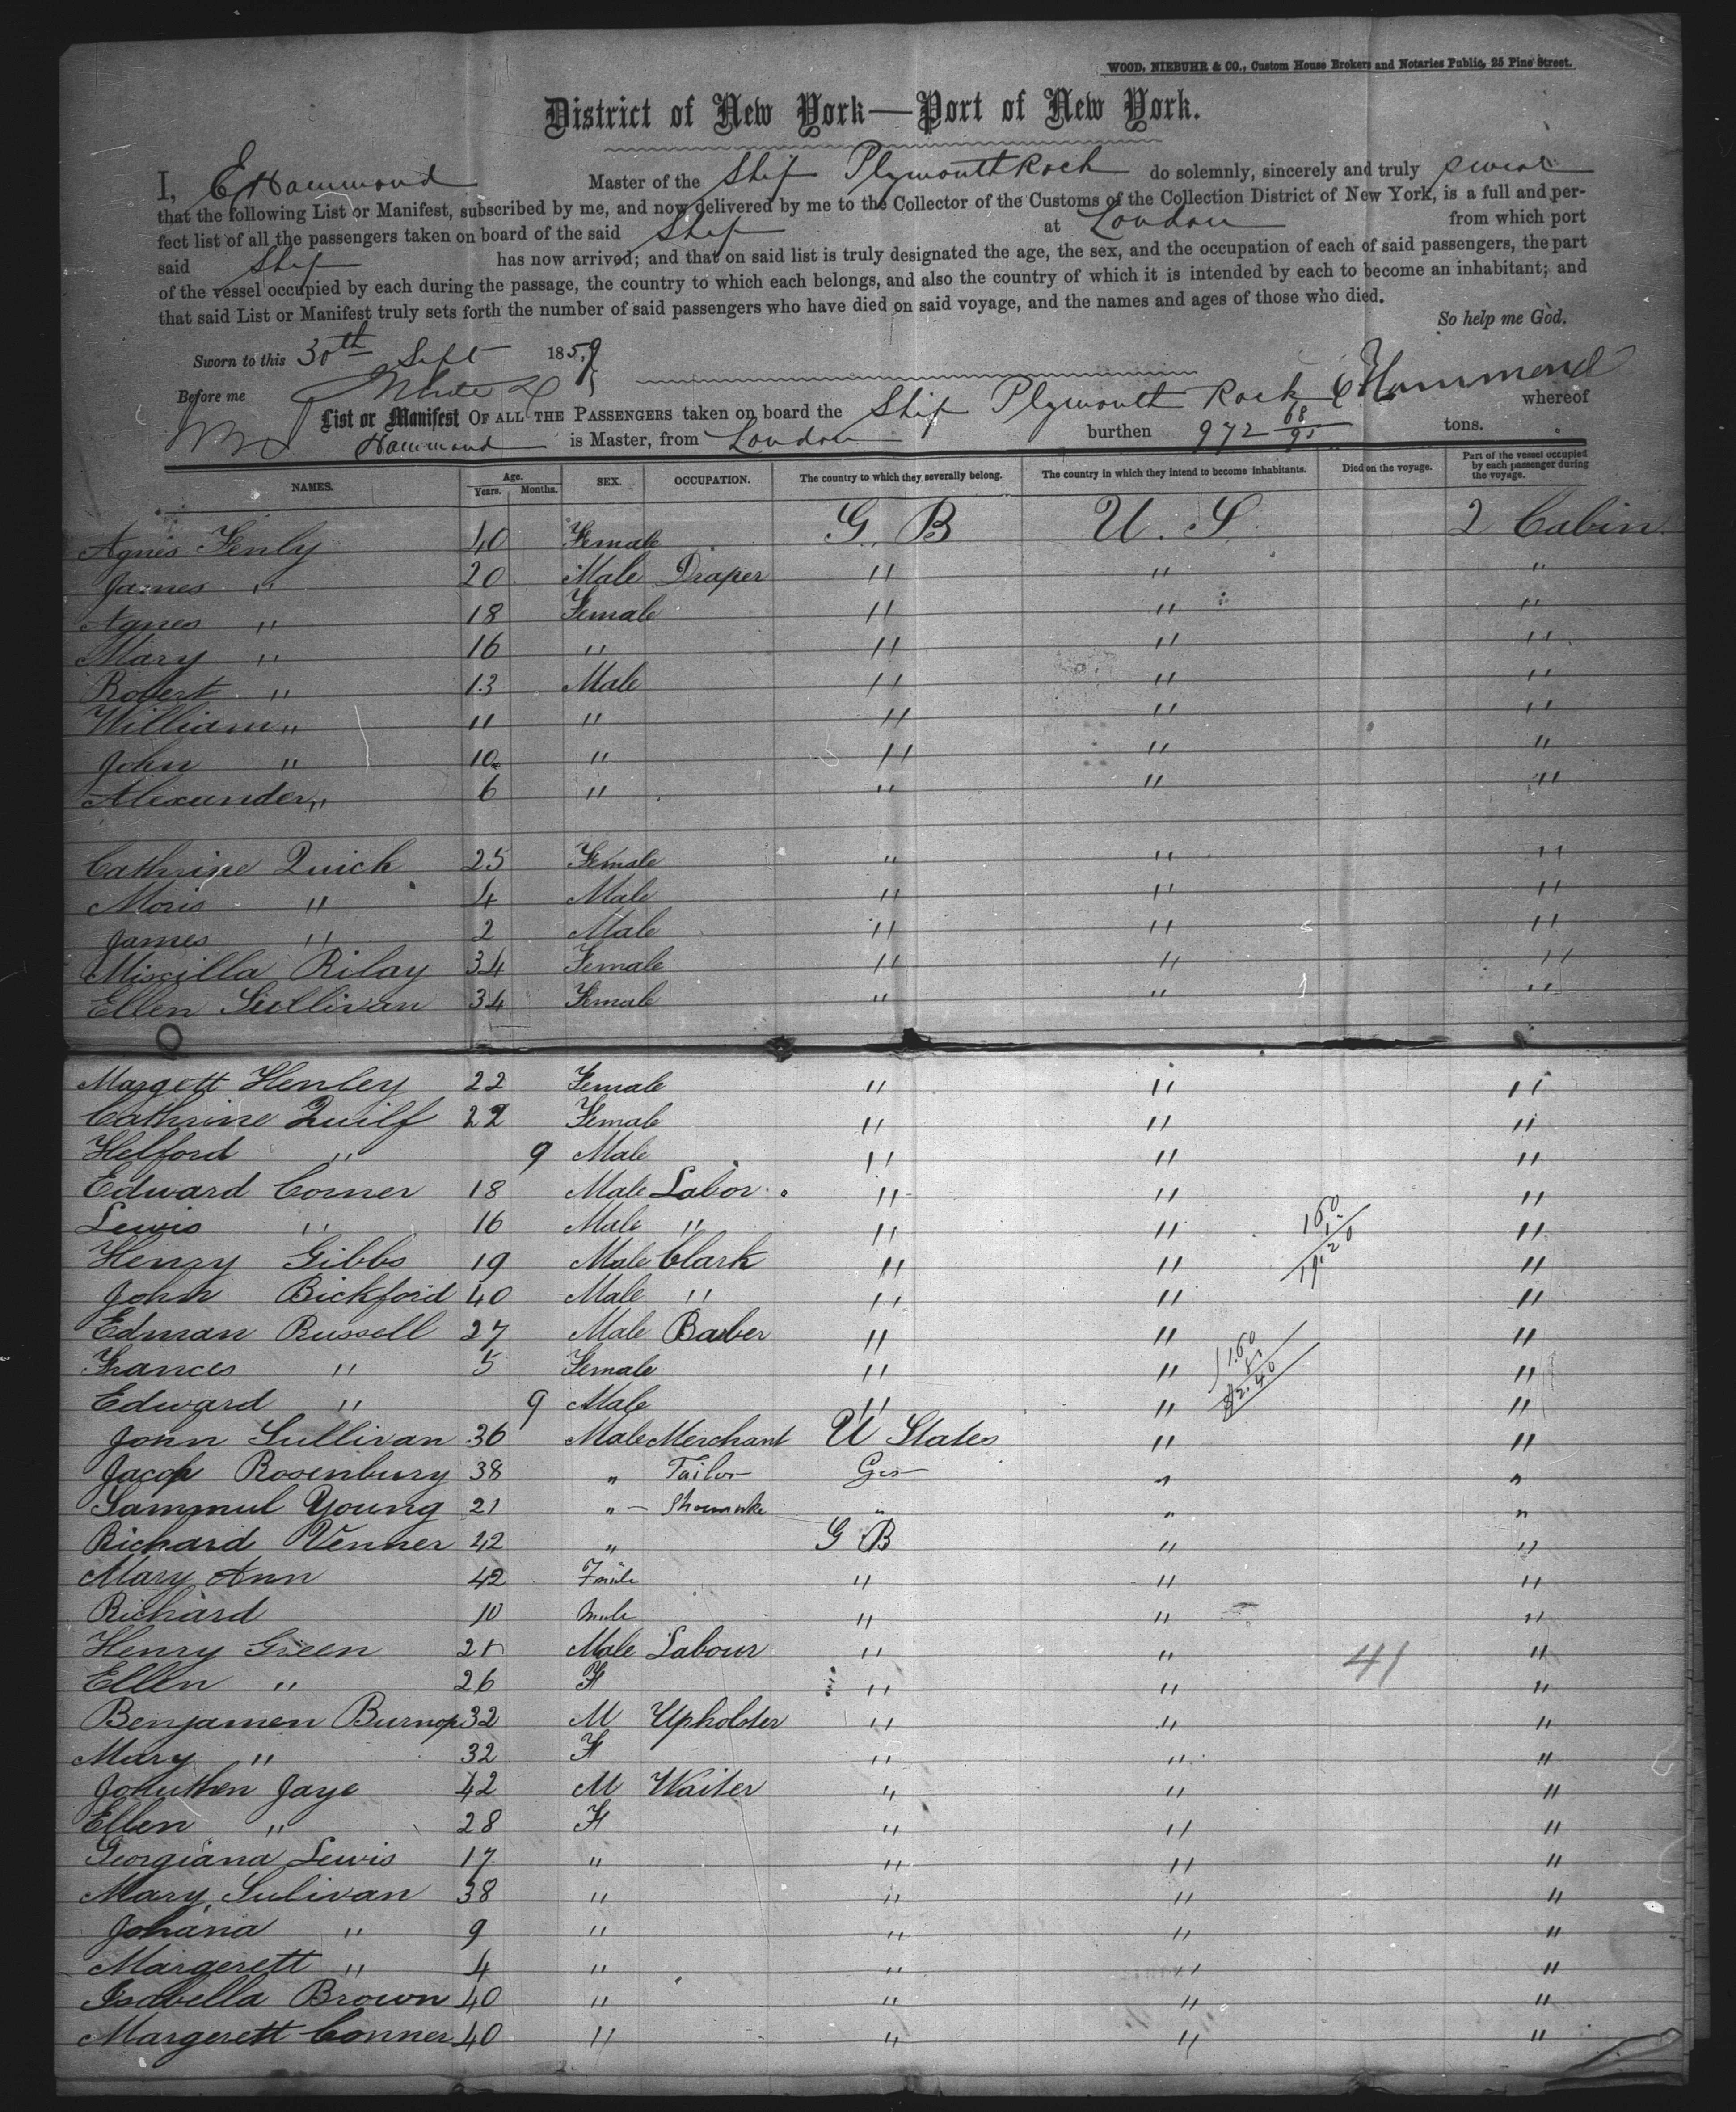 WOOD, NIEBUHR & CO., Custom House Brokers and Notaries Public, 25 Pine Street.
District of New York—Port of New York.
I, E Hammond Master of the Ship Plymouth Rock do solemnly, sincerely and truly swear
that the following List or Manifest, subscribed by me, and now delivered by me to the Collector of the Customs of the Collection District of New York, is a full and per-
fect list of all the passengers taken on board of the said Ship at London from which port
said Ship has now arrived; and that on said list is truly designated the age, the sex, and the occupation of each of said passengers, the part
of the vessel occupied by each during the passage, the country to which each belongs, and also the country of which it is intended by each to become an inhabitant; and
that said List or Manifest truly sets forth the number of said passengers who have died on said voyage, and the names and ages of those who died.
So help me God.
Sworn to this 30th Sept 1859
E Hammond
Before me
List or Manifest OF ALL THE PASSENGERS taken on board the Ship Plymouth Rock whereof
Hammond is Master, from London burthen 972 68/95 tons.
NAMES. Age. Years. Months. SEX. OCCUPATION. The country to which they severally belong. The country in which they intend to become inhabitants. Died on the voyage. Part of the vessel occupied by each passenger during the voyage.
Agnes Fenly 40 Female G. B U. S. 2 Cabin
James " 20 Male Draper " " "
Agnes " 18 Female " " "
Mary " 16 " " " "
Robert " 13 Male " " "
William " 11 " " " "
John " 10 " " " "
Alexander " 6 " " " "
Cathrine Quick 25 Female " " "
Moris " 4 Male " " "
James " 2 Male " " "
Miscilla Rilay 34 Female " " "
Ellen Sullivan 34 Female " " "
Margett Henley 22 Female " " "
Cathrine Quilf 22 Female " " "
Helford " 9 Male " " "
Edward Comer 18 Male Labor " " "
Lewis " 16 Male " " " "
Henry Gibbs 19 Male Clark " " "
John Bickford 40 Male " " " "
Edman Russell 27 Male Baber " " "
Frances " 5 Female " " "
Edward " 9 Male " " "
John Sullivan 36 Male Merchant U States " "
Jacop Rosenbury 38 " Tailor Ger " "
Sammul Young 21 " Shoemake " " "
Richard Venner 42 " G B " "
Mary Ann 42 Female " " "
Richard 10 Male " " "
Henry Green Male Labour " " "
41
Ellen " 26 F " " "
Benjamen Burnop 32 M Upholster " " "
Mary " 32 F " " "
Jonuthen Jaye 42 M Waiter " " "
Ellen " 28 F " " "
Georgiana Lewis 17 " " " "
Mary Sulivan 38 " " " "
Johana " 9 " " " "
Margerett " 4 " " " "
Isabella Brown 40 " " " "
Margerett Conner 40 " " " "